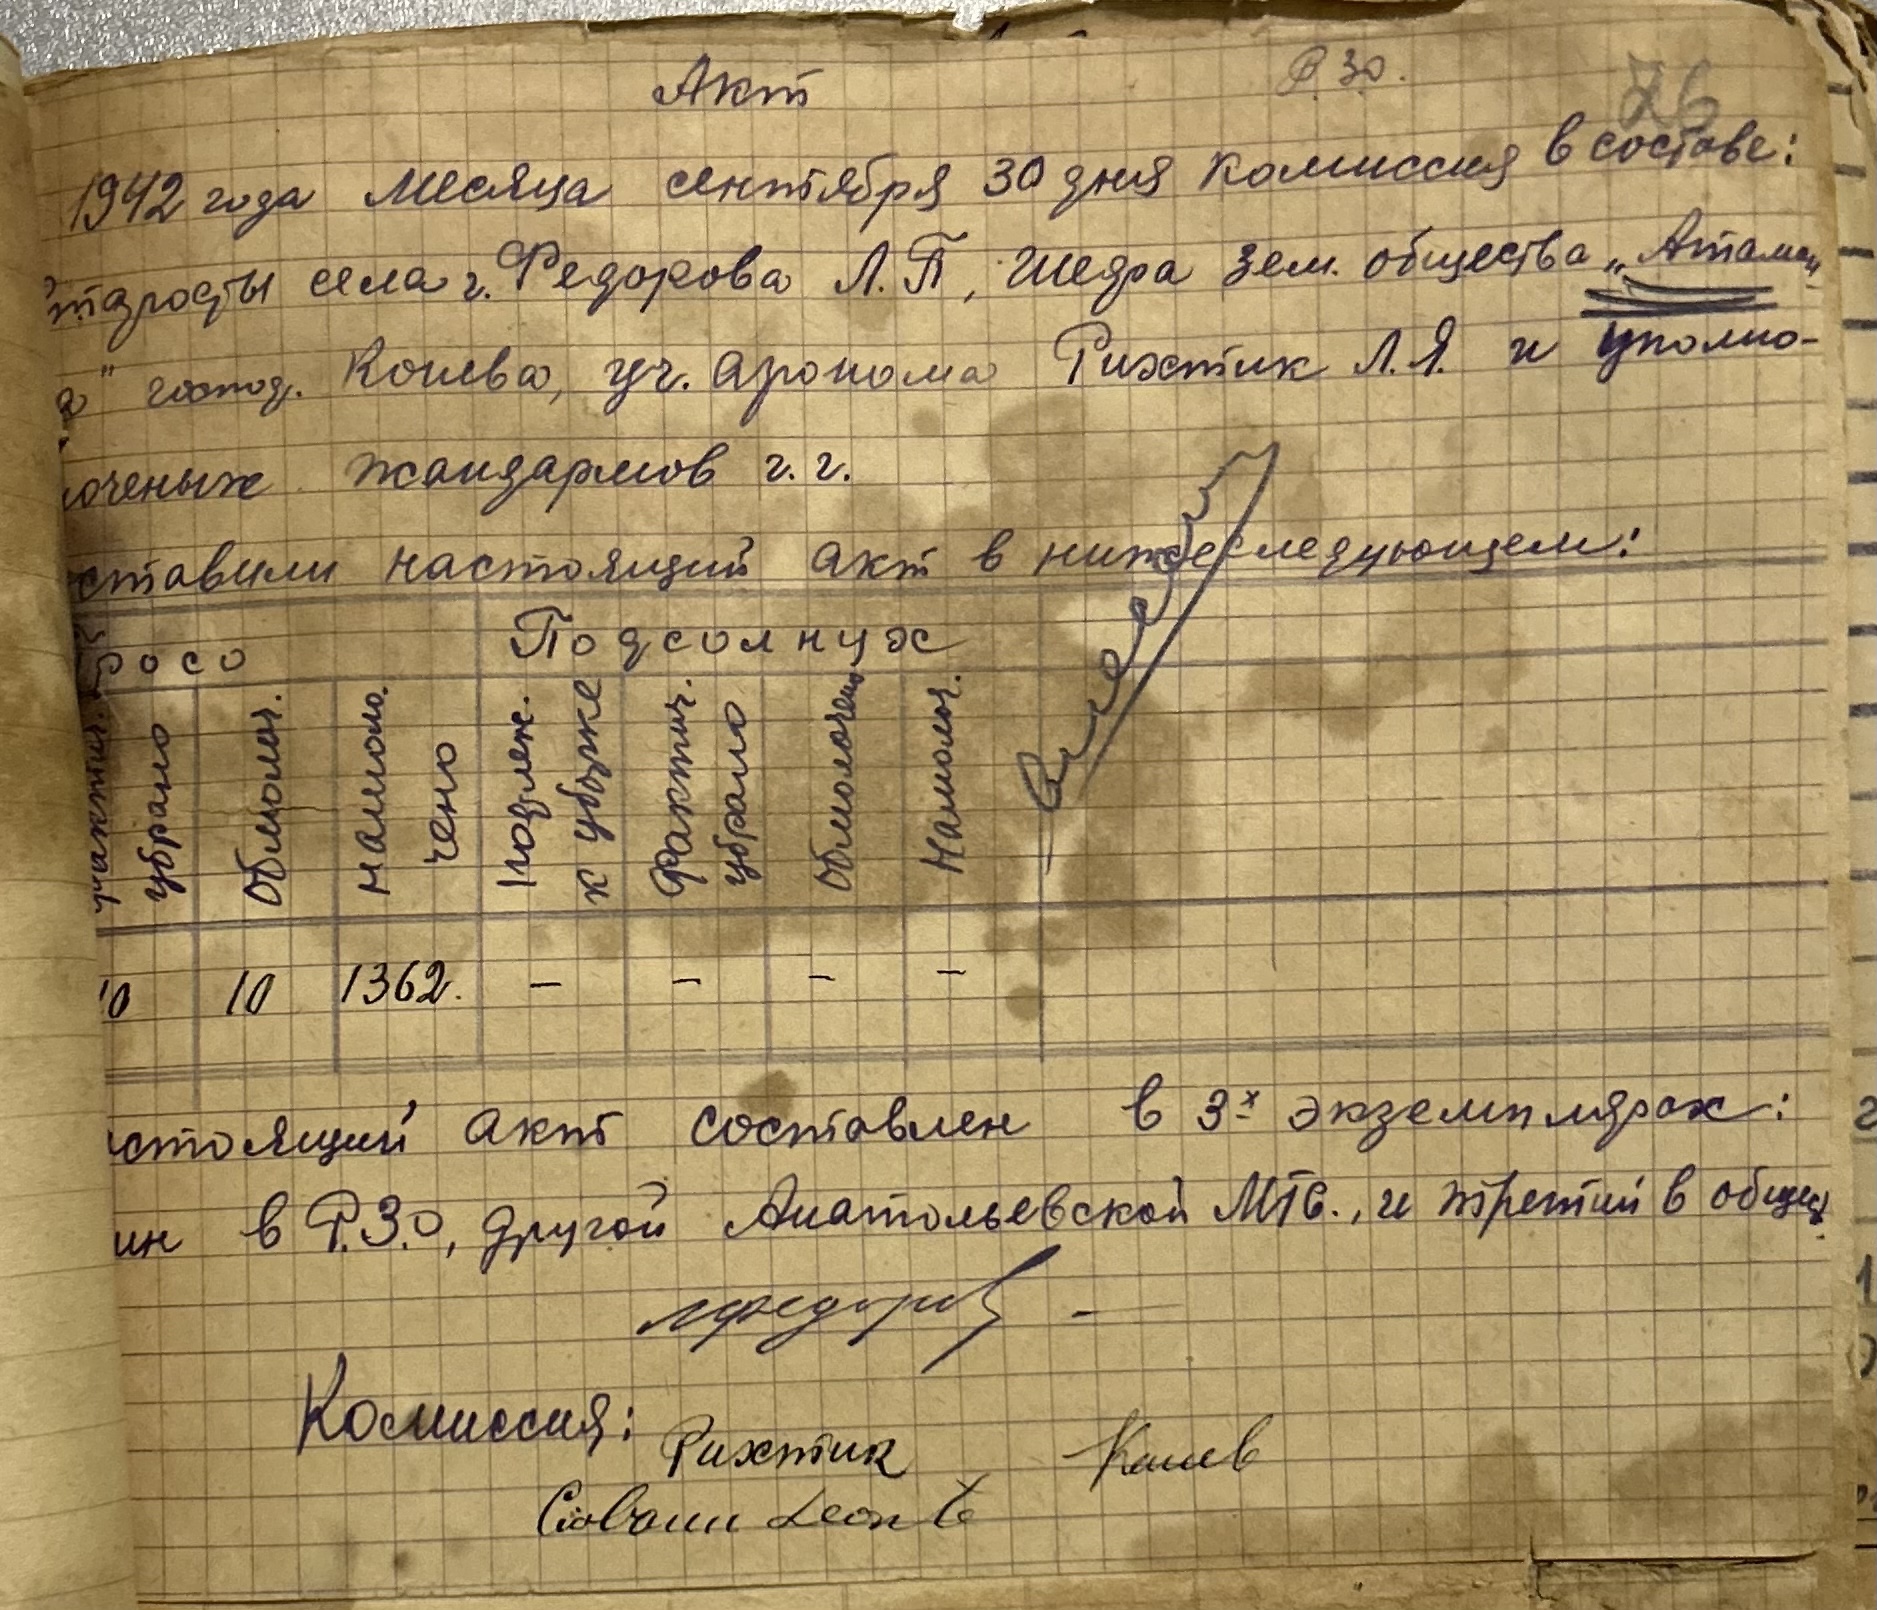 Акт
Р.З.О.
26
1942 года месяца сентября 30 дня комиссия в составе:
таросты села г. Федорова Л.П, Шефа зем. общества „Атаман
а" господ. Коева, уч. агронома Рихтик Л.Я. и уполно-
оченых жандармов г.г.
ставили настоящий акт в нижеследующем:
росо
Подсолнух
фактич. убрано
Обмолоч.
Намоло.
чено
Подлеж.
к уборке
Фактич.
убрано
Обмолочено
Намолоч.
10 10 1362. – – – –
стоящий акт составлен в 3х экземплярах:
ин в Р.З.О, другой Анатольевской МТС., и третий в общес
ЛФедоров
Комиссия:
Рихтик
Ciobanu Leonte